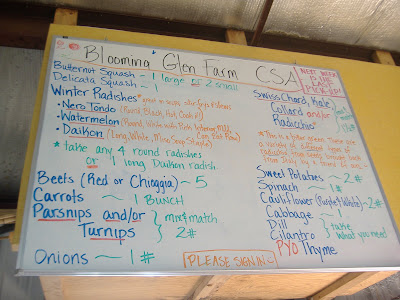 Blooming Glen Farm CSA
NEXT WEEK IS THE LAST PICK-UP!
Butternut Squash ~ 1 large or 2 small
Delicata Squash ~ 1
Winter Radishes *great in soups, stir frys & slaws
• Nero Tondo (Round, Black, Hot, Cook it!)
• Watermelon (Round, White with Pink Interior, Mild, Can Eat Raw)
• Daikon (Long, White, Miso Soup Staple!)
* take any 4 round radishes
or 1 long Daikon radish
Beets (Red or Chioggia) ~ 5
Carrots ~ 1 BUNCH
Parsnips and/or
Turnips
mix & match
2#
Onions ~ 1#
PLEASE SIGN IN
Swiss Chard, Kale,
Collard and/or
Radicchio*
Sweet Potatoes ~ 2#
Spinach ~ 1#
Cauliflower (Purple & White) ~ 2#
Cabbage ~ 1
Dill
Cilantro
take what you need
PYO Thyme